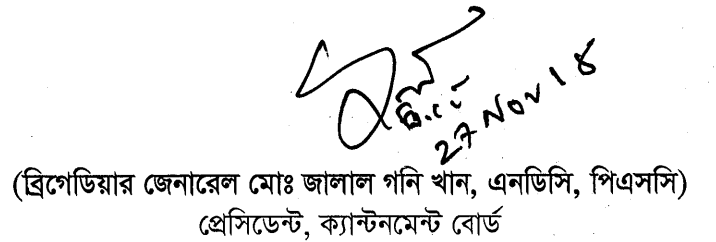 27 Nov 18
(ব্রিগেডিয়ার জেনারেল মোঃ জালাল গনি খান, এনডিসি, পিএসসি)
প্রেসিডেন্ট, ক্যান্টনমেন্ট বোর্ড